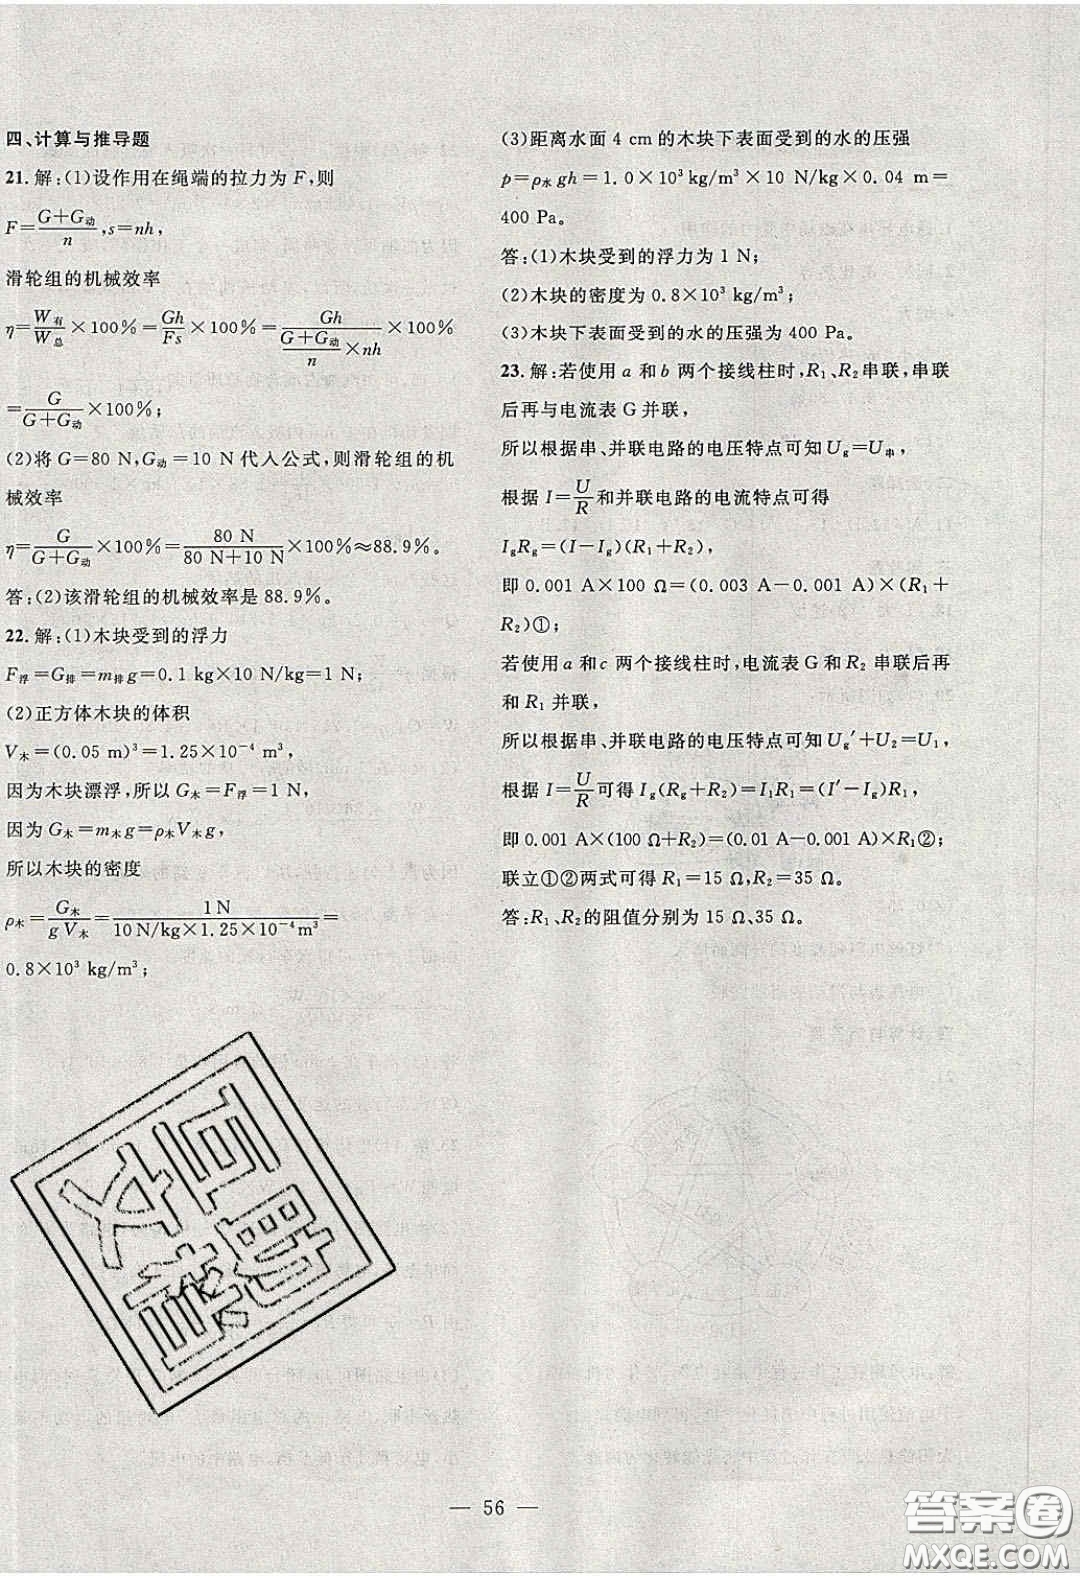 四、计算与推导题
21.解:(1)设作用在绳端的拉力为 F,则
F=(G+G动)/n,s=nh,
滑轮组的机械效率
η=W有/W总×100%=Gh/Fs×100%=Gh/((G+G动)/n×nh)×100%
=G/(G+G动)×100%;
(2)将 G=80 N,G动=10 N 代入公式,则滑轮组的机
械效率
η=G/(G+G动)×100%=80 N/(80 N+10 N)×100%≈88.9%。
答:(2)该滑轮组的机械效率是 88.9%。
22.解:(1)木块受到的浮力
F浮=G排=m排g=0.1 kg×10 N/kg=1 N;
(2)正方体木块的体积
V木=(0.05 m)³=1.25×10⁻⁴ m³,
因为木块漂浮,所以 G木=F浮=1 N,
因为 G木=m木g=ρ木V木g,
所以木块的密度
ρ木=G木/(gV木)=1 N/(10 N/kg×1.25×10⁻⁴ m³)=
0.8×10³ kg/m³;
(3)距离水面 4 cm 的木块下表面受到的水的压强
p=ρ水gh=1.0×10³ kg/m³×10 N/kg×0.04 m=
400 Pa。
答:(1)木块受到的浮力为 1 N;
(2)木块的密度为 0.8×10³ kg/m³;
(3)木块下表面受到的水的压强为 400 Pa。
23.解:若使用 a 和 b 两个接线柱时,R₁、R₂ 串联,串联
后再与电流表 G 并联,
所以根据串、并联电路的电压特点可知 Ug=U串,
根据 I=U/R 和并联电路的电流特点可得
IgRg=(I-Ig)(R₁+R₂),
即 0.001 A×100 Ω=(0.003 A-0.001 A)×(R₁+
R₂)①;
若使用 a 和 c 两个接线柱时,电流表 G 和 R₂ 串联后再
和 R₁ 并联,
所以根据串、并联电路的电压特点可知 Ug′+U₂=U₁,
根据 I=U/R 可得 Ig(Rg+R₂)=I₁R₁=(I′-Ig)R₁,
即 0.001 A×(100 Ω+R₂)=(0.01 A-0.001 A)×R₁②;
联立①②两式可得 R₁=15 Ω,R₂=35 Ω。
答:R₁、R₂ 的阻值分别为 15 Ω、35 Ω。
— 56 —
答案圈
MXQE.COM